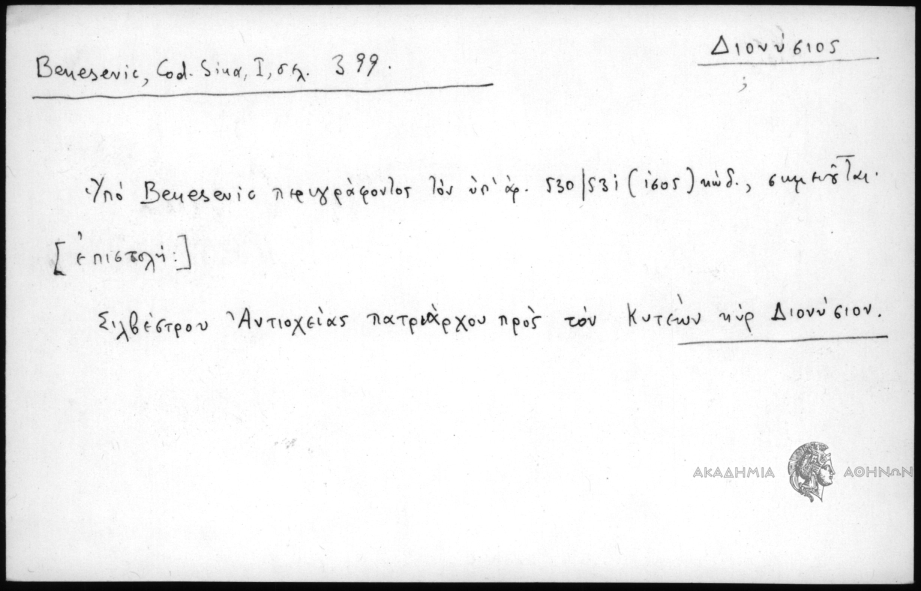 Benesevic, Cod. Sina, I, σελ. 399.
Διονύσιος
;
Ὑπό Benesevic περιγράφοντος τόν ὑπ' ἀρ. 530/531 (ἰσος) κώδ., σημειοῦται.
[ἐπιστολή:]
Σιλβέστρου Ἀντιοχείας πατριάρχου πρὸς τὸν Κυτέων κὺρ Διονύσιον.
ΑΚΑΔΗΜΙΑ ΑΘΗΝΩΝ